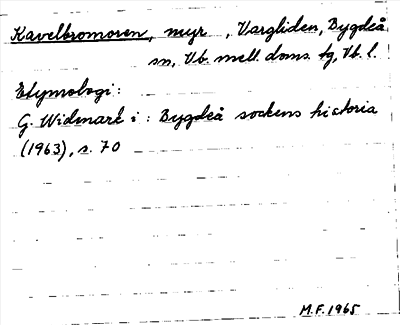 Kavelbromoren, myr, Vargliden, Bygdeå
sn, Vb. mell. doms. tg, Vb. l.
Etymologi:
G. Widmark i: Bygdeå sockens historia
(1963), s. 70
M.F. 1965